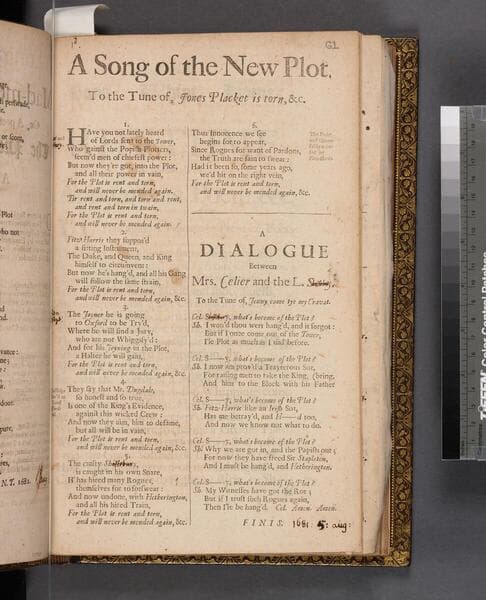 3.
G1
A Song of the New Plot,
To the Tune of, Jones Placket is torn, &c.
1.
HAve you not lately heard
of Lords sent to the Tower,
Who gainst the Popish Plotters,
seem'd men of chiefest power:
But now they're got, into the Plot,
and all their power in vain,
For the Plot is rent and torn,
and will never be mended again.
Tis rent and torn, and torn and rent,
and rent and torn in twain,
For the Plot is rent and torn,
and will never be mended again.
2.
Fitz Harris they suppos'd
a fitting Instrument,
The Duke, and Queen, and King
himself to circumvent:
But now he's hang'd, and all his Gang
will follow the same strain,
For the Plot is rent and torn,
and will never be mended again, &c.
The Joyner he is going
to Oxford to be Try'd,
Where he will find a Jury,
who are not Whiggify'd:
And for his Joyning in the Plot,
a Halter he will gain,
For the Plot is rent and torn,
and will never be mended again, &c.
4.
They say that Mr. Dugdale,
so honest and so true,
Is one of the King's Evidence,
against this wicked Crew:
And now they aim, him to defame,
but all will be in vain,
For the Plot is rent and torn,
and will never be mended again, &c.
The crafty Shaftsbury,
is caught in his own Snare,
H' has hired many Rogues,
themselves for to forswear:
And now undone, with Hetherington,
and all his hired Train,
For the Plot is rent and torn,
and will never be mended again, &c.
6.
Thus Innocence we see
begins for to appear,
Since Rogues for want of Pardons,
the Truth are fain to swear:
Had it been so, some years ago,
we'd hit on the right vein,
For the Plot is rent and torn,
and will never be mended again, &c.
A
DIALOGUE
Between
Mrs. Celier and the L.
To the Tune of, Jenny come tye my Cravat.
Cel. what's become of the Plot?
Sh. I wou'd thou wert hang'd, and it forgot:
But if I once come out of the Tower,
I'le Plot as much as I did before.
Cel. S——y, what's become of the Plot?
Sh. I now am prov'd a Trayterous Sot,
For raising men to take the King,
And him to the Block with his Father (bring.
Cel. S——y, what's become of the Plot?
Sh. Fitz-Harris like an Irish Sot,
Has me betray'd, and H——d too,
And now we know not what to do.
Cel. S——y, what's become of the Plot?
Sh. Why we are got in, and the Papists out;
For now they have freed Sir Stapleton,
And I must be hang'd, and Hetherington.
Cel. S——y, what's become of the Plot?
Sh. My Witnesses have got the Rot;
But if I trust such Rogues again,
Then I'le be hang'd. Cel. Amen. Amen.
FINIS. 1681. 5: aug:
N.T. 1681.